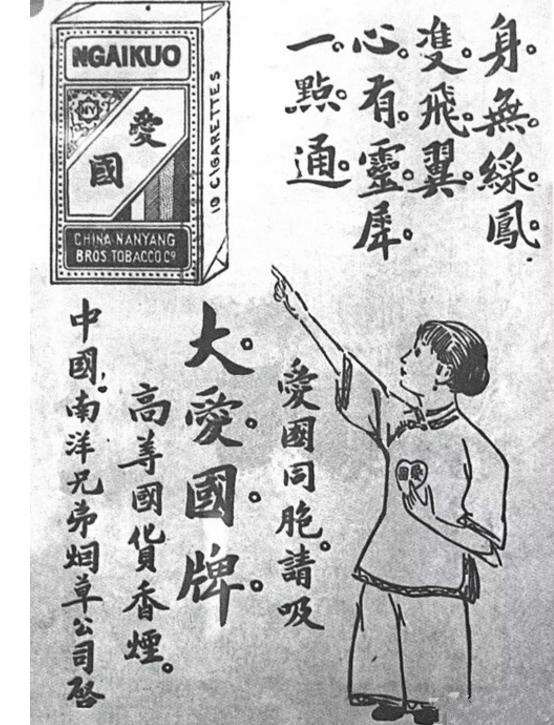 身。無。綵。鳳。
雙。飛。翼。
心。有。靈。犀。
一。點。通。
NGAIKUO
NY
愛國
10 CIGARETTES
CHINA NANYANG
BROS. TOBACCO Cº
愛國
愛國同胞。請吸
大。愛。國。牌。
高等國貨香煙。
中國。南洋兄弟烟草公司啓